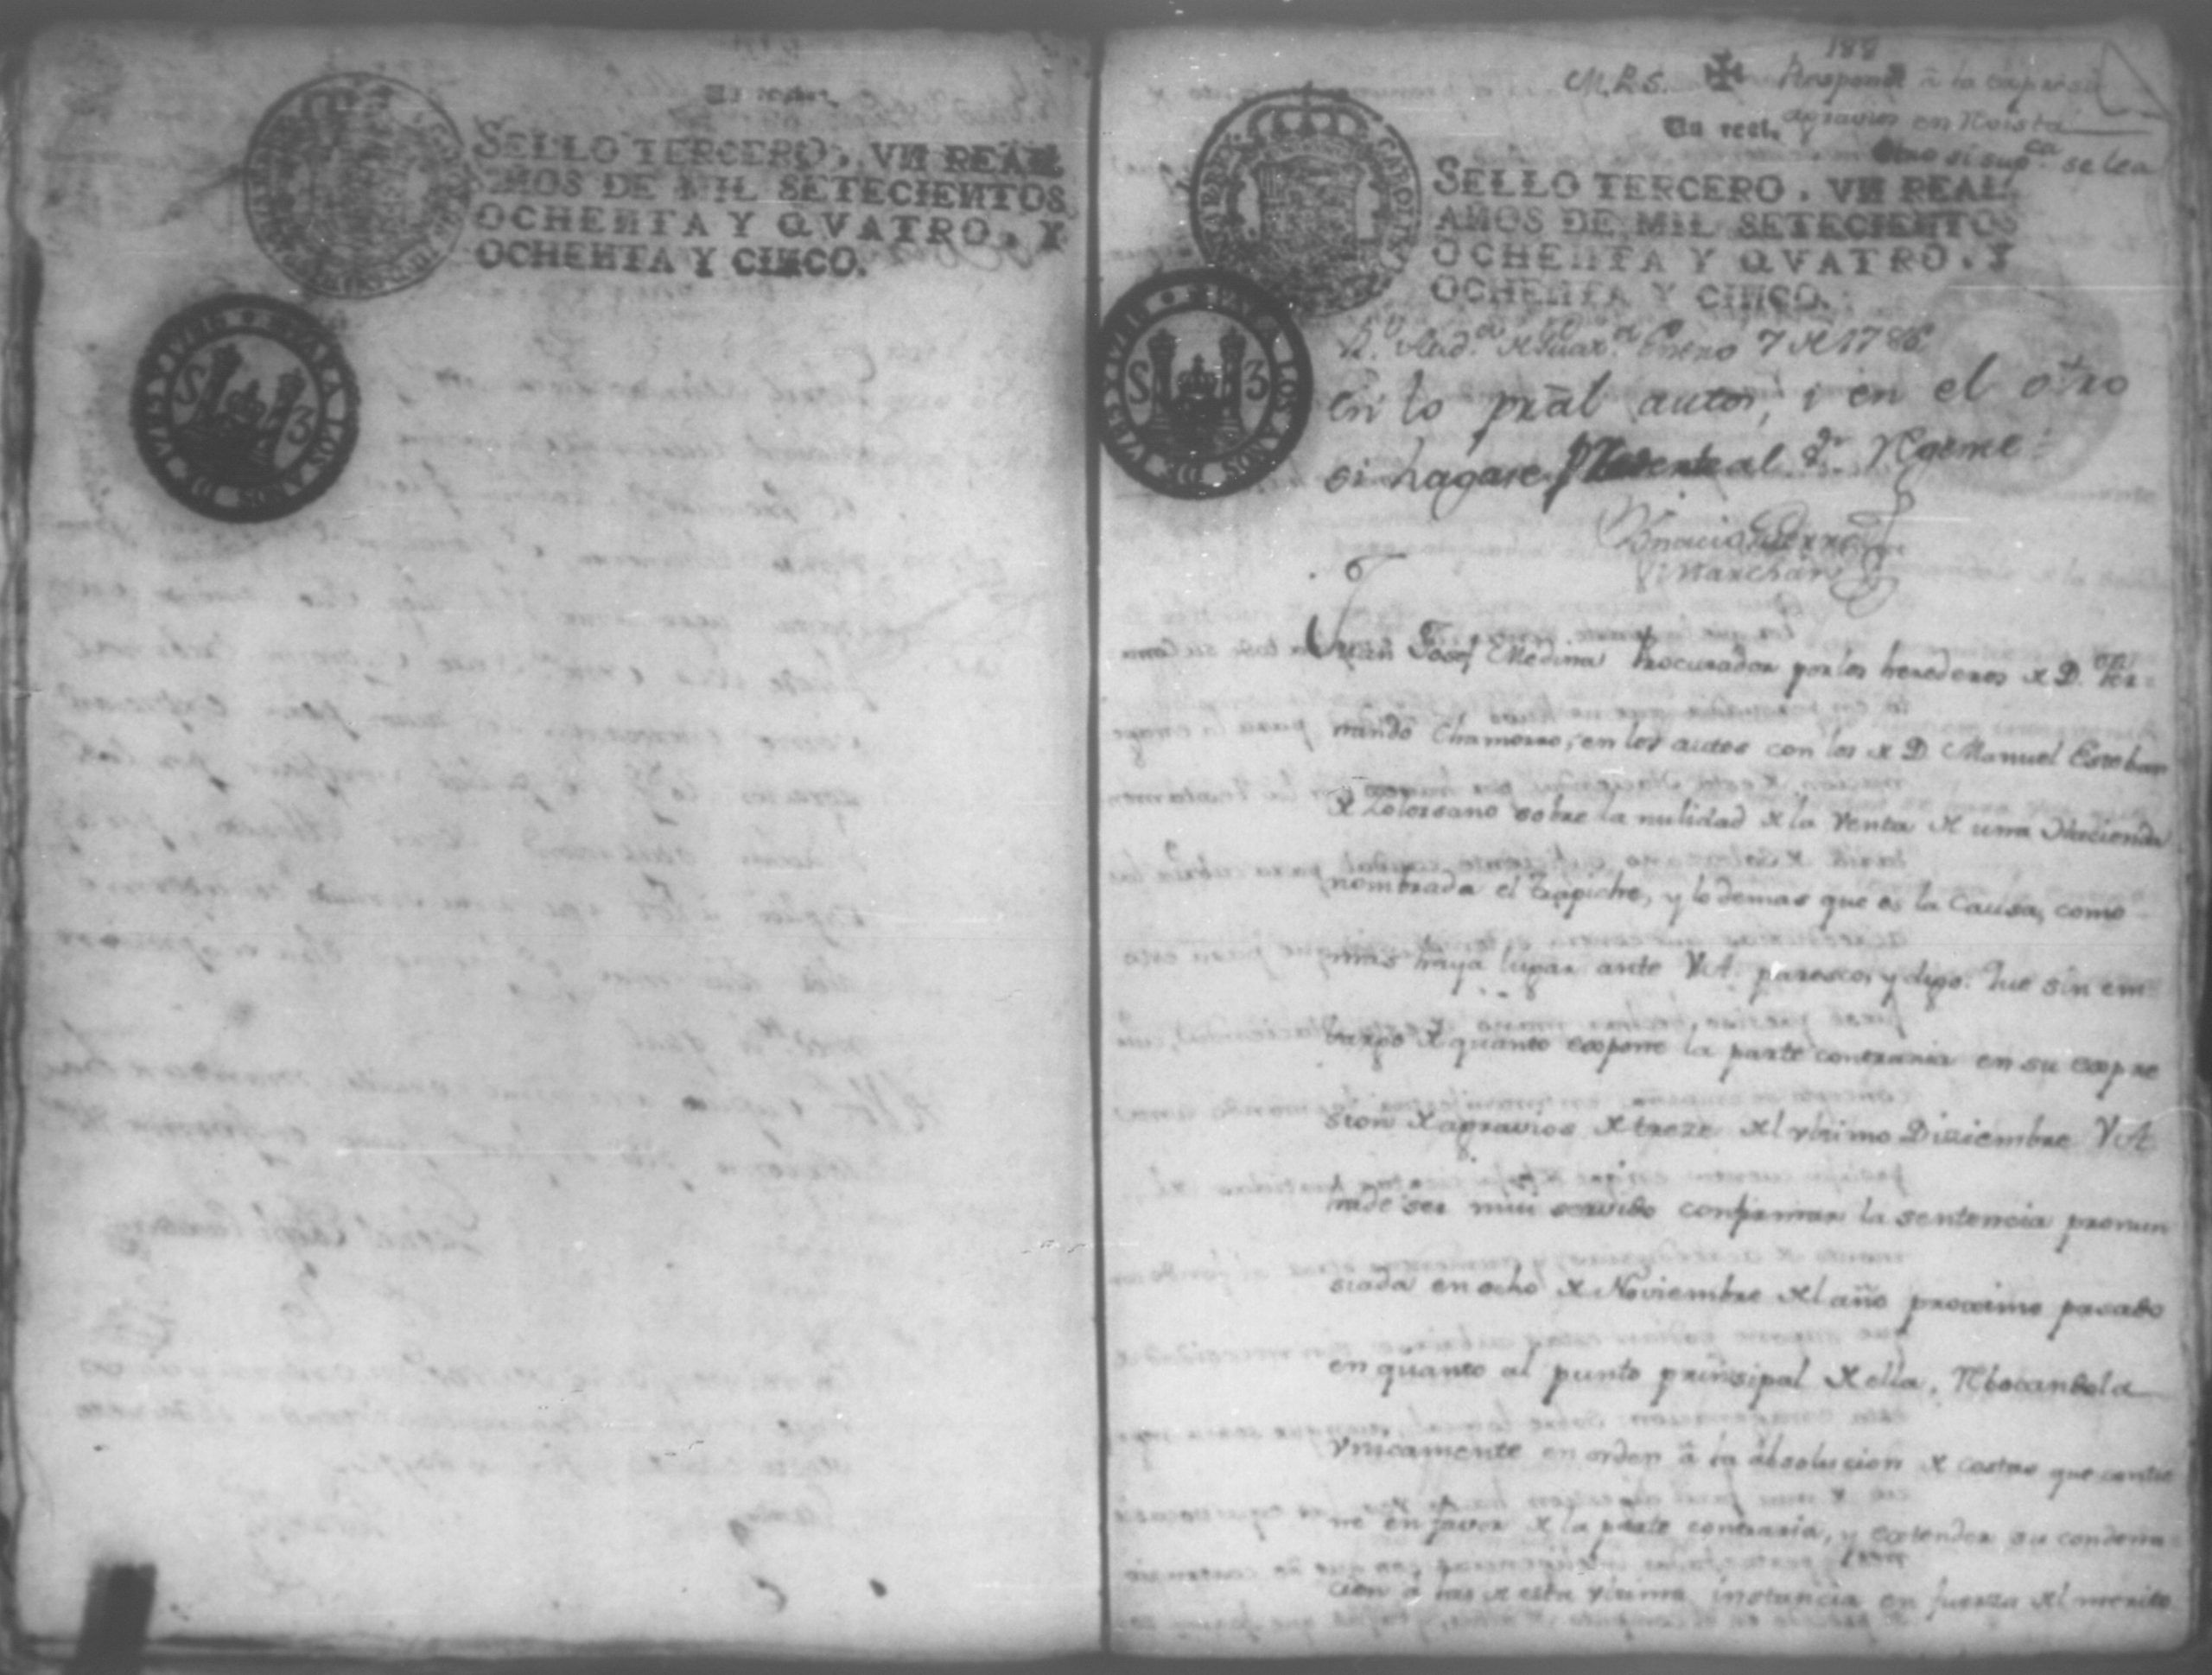 Un real.
SELLO TERCERO, VN REAL
AÑOS DE MIL SETECIENTOS
OCHENTA Y QVATRO, Y
OCHENTA Y CINCO.
S 3
188
M.P.S. Responde â la expresn.
Un real. agravios en Vista
Otro si supca. se lea
SELLO TERCERO, VN REAL
AÑOS DE MIL SETECIENTOS
OCHENTA Y QVATRO, Y
OCHENTA Y CINCO.
CAROLUS
S 3
PARA LOS AÑOS DE
Rl. Audª. Enero 7 de 1786
En lo pral autos, i en el otro
si hagase presente al Sr. Regente
Ignacio Guerra
Marchan
Juan Josef Medina Procurador por los herederos de D. Fer-
nando Chamorro, en los autos con los de D. Manuel Esteban
de Solorsano sobre la nulidad de la venta de una Hacienda
nombrada el Trapiche, y lo demas que es la causa, como
mas haya lugar ante V.A. paresco, y digo: Que sin em-
bargo de quanto expone la parte contraria en su expre
sion de agravios de treze del vltimo Diziembre V.A.
hade ser mui servido confirmar la sentencia pronun
siada en ocho de Noviembre del año proximo pasado
en quanto al punto prinsipal de ella, Rebocandola
vnicamente en orden â la absolucion de costas que contie
ne en favor de la parte contraria, y extender su condena
cion â las de esta vltima instancia en fuerza del merito